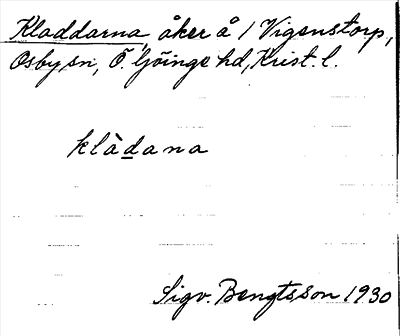 Kladdarna, åker å 1 Vigenstorp,
Osby sn, Ö. Göinge hd, Krist. l.
klàdana
Sigv. Bengtsson 1930